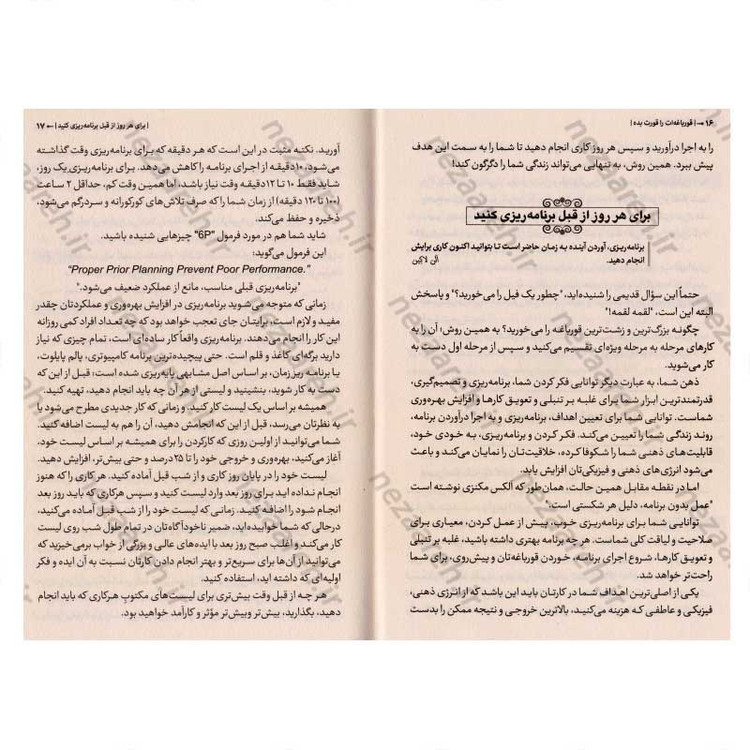 ۱۶ | قورباغه‌ات را قورت بده |
را به اجرا درآورید و سپس هر روز کاری انجام دهید تا شما را به سمت این هدف
پیش ببرد. همین روش، به تنهایی می‌تواند زندگی شما را دگرگون کند!
برای هر روز از قبل برنامه‌ریزی کنید
برنامه‌ریزی، آوردن آینده به زمان حاضر است تا بتوانید اکنون کاری برایش
انجام دهید. آلن لاکین
حتماً این سؤال قدیمی را شنیده‌اید، "چطور یک فیل را می‌خورید؟" و پاسخش
البته این است، "لقمه لقمه!"
چگونه بزرگ‌ترین و زشت‌ترین قورباغه را می‌خورید؟ به همین روش؛ آن را به
کارهای مرحله به مرحله ویژه‌ای تقسیم می‌کنید و سپس از مرحله اول دست به
کار می‌شوید.
ذهن شما، به عبارت دیگر توانایی فکر کردن شما، برنامه‌ریزی و تصمیم‌گیری،
قدرتمندترین ابزار شما برای غلبه بر تنبلی و تعویق کارها و افزایش بهره‌وری
شماست. توانایی شما برای تعیین اهداف، برنامه‌ریزی و به اجرا درآوردن برنامه،
روند زندگی شما را تعیین می‌کند. فکر کردن و برنامه‌ریزی، به خودی خود،
قابلیت‌های ذهنی شما را شکوفا کرده، خلاقیت‌تان را نمایان می‌کند و باعث
می‌شود انرژی‌های ذهنی و فیزیکی‌تان افزایش یابد.
اما در نقطه مقابل همین حالت، همان‌طور که آلکس مکنزی نوشته است
"عمل بدون برنامه، دلیل هر شکستی است."
توانایی شما برای برنامه‌ریزی خوب، پیش از عمل کردن، معیاری برای
صلاحیت و لیاقت کلی شماست. هر چه برنامه بهتری داشته باشید، غلبه بر تنبلی
و تعویق کارها، شروع اجرای برنامه، خوردن قورباغه‌تان و پیش‌روی، برای شما
راحت‌تر خواهد شد.
یکی از اصلی‌ترین اهداف شما در کارتان باید این باشد که از انرژی ذهنی،
فیزیکی و عاطفی که هزینه می‌کنید، بالاترین خروجی و نتیجه ممکن را بدست
| برای هر روز از قبل برنامه‌ریزی کنید | ۱۷
آورید. نکته مثبت در این است که هر دقیقه که برای برنامه‌ریزی وقت گذاشته
می‌شود، ۱۰ دقیقه از اجرای برنامه را کاهش می‌دهد. برای برنامه‌ریزی یک روز،
شاید فقط ۱۰ تا ۱۲ دقیقه وقت نیاز باشد، اما همین وقت کم، حداقل ۲ ساعت
(۱۰۰ تا ۱۲۰ دقیقه) از زمان شما را که صرف تلاش‌های کورکورانه و سردرگم می‌شود،
ذخیره و حفظ می‌کند.
شاید شما هم در مورد فرمول "6P" چیزهایی شنیده باشید.
این فرمول می‌گوید:
"Proper Prior Planning Prevent Poor Performance."
"برنامه‌ریزی قبلی مناسب، مانع از عملکرد ضعیف می‌شود."
زمانی که متوجه می‌شوید برنامه‌ریزی در افزایش بهره‌وری و عملکردتان چقدر
مفید و لازم است، برایتان جای تعجب خواهد بود که چه تعداد افراد کمی روزانه
این کار را انجام می‌دهند. برنامه‌ریزی واقعاً کار ساده‌ای است، تمام چیزی که نیاز
دارید برگه‌ای کاغذ و قلم است. حتی پیچیده‌ترین برنامه کامپیوتری، پالم پایلوت،
یا برنامه ریز زمان، بر اساس اصل مشابهی پایه‌ریزی شده است؛ قبل از این که
دست به کار شوید، بنشینید و لیستی از هر آن چه باید انجام دهید، تهیه کنید.
همیشه بر اساس یک لیست کار کنید. و زمانی که کار جدیدی مطرح می‌شود یا
به نظرتان می‌رسد، قبل از این که انجامش دهید، آن را هم به لیست اضافه کنید.
شما می‌توانید از اولین روزی که کارکردن را برای همیشه بر اساس لیست خود،
آغاز می‌کنید، بهره‌وری و خروجی خود را تا ۲۵درصد و حتی بیش‌تر، افزایش دهید.
لیست خود را در پایان روز کاری و از شب قبل آماده کنید. هر کاری را که هنوز
انجام نداده اید برای روز بعد وارد لیست کنید و سپس هرکاری که باید روز بعد
انجام شود را اضافه کنید. زمانی که لیست خود را از شب قبل آماده می‌کنید،
درحالی که شما خوابیده‌اید، ضمیر ناخودآگاه‌تان در تمام طول شب روی لیست
کار می‌کند و اغلب صبح روز بعد با ایده‌های عالی و بزرگی از خواب برمی‌خیزید که
می‌توانید از آن‌ها برای سریع‌تر و بهتر انجام دادن کارتان نسبت به آن ایده و فکر
اولیه‌ای که داشته اید، استفاده کنید.
هر چه از قبل وقت بیش‌تری برای لیست‌های مکتوب هرکاری که باید انجام
دهید، بگذارید، بیش‌تر وبیش‌تر مؤثر و کارآمد خواهید بود.
nezaareh.ir